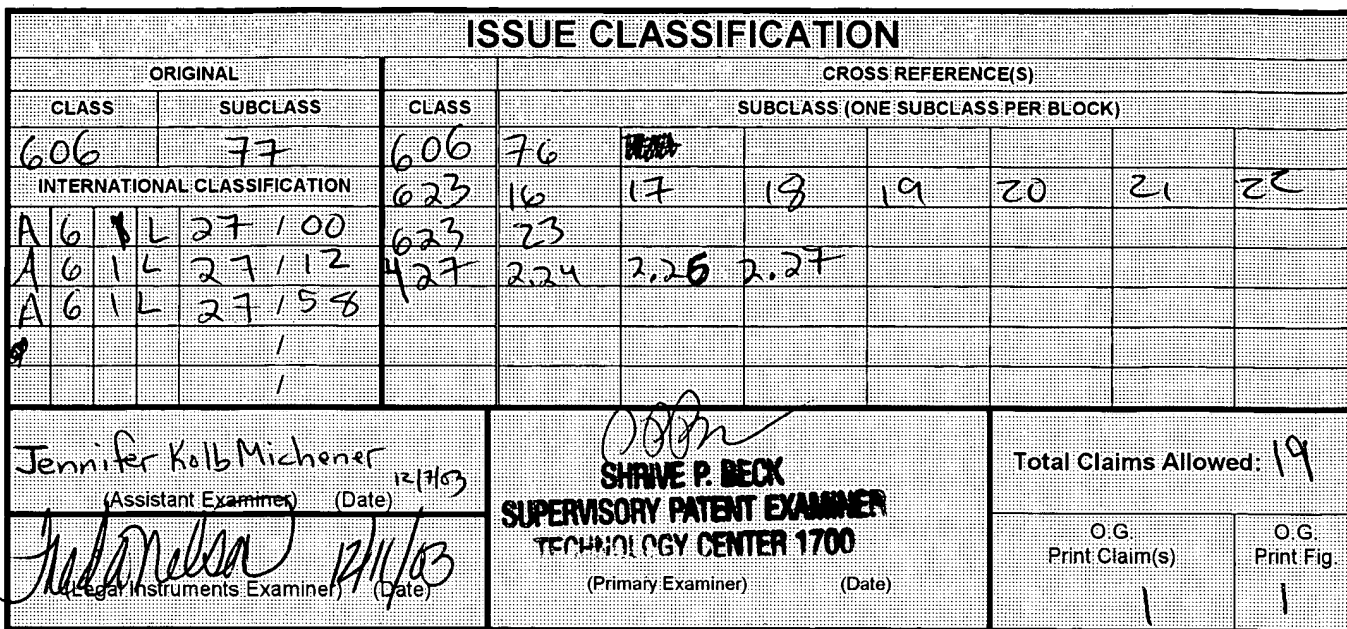 ISSUE CLASSIFICATION
ORIGINAL CROSS REFERENCE(S)
CLASS SUBCLASS CLASS SUBCLASS (ONE SUBCLASS PER BLOCK)
606 77 606 76
INTERNATIONAL CLASSIFICATION 623 16 17 18 19 20 21 22
A 6 1 L 27 / 00 623 23
A 6 1 L 27 / 12 427 2.24 2.26 2.27
A 6 1 L 27 / 58
/
/
Jennifer Kolb Michener 12/7/03
(Assistant Examiner) (Date)
12/11/03
(Legal Instruments Examiner) (Date)
SHRIVE P. BECK
SUPERVISORY PATENT EXAMINER
TECHNOLOGY CENTER 1700
(Primary Examiner) (Date)
Total Claims Allowed: 19
O.G. O.G.
Print Claim(s) Print Fig.
1 1